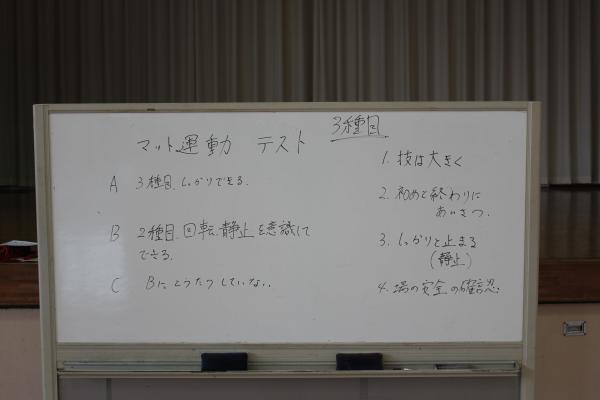 マット運動 テスト 3種目
A 3種目.しっかりできる.
B 2種目.回転.静止を意識して
できる.
C Bにとうたつしていない.
1. 技は大きく
2. 初めと終わりに
あいさつ.
3. しっかりと止まる
(静止)
4. 場の安全の確認.